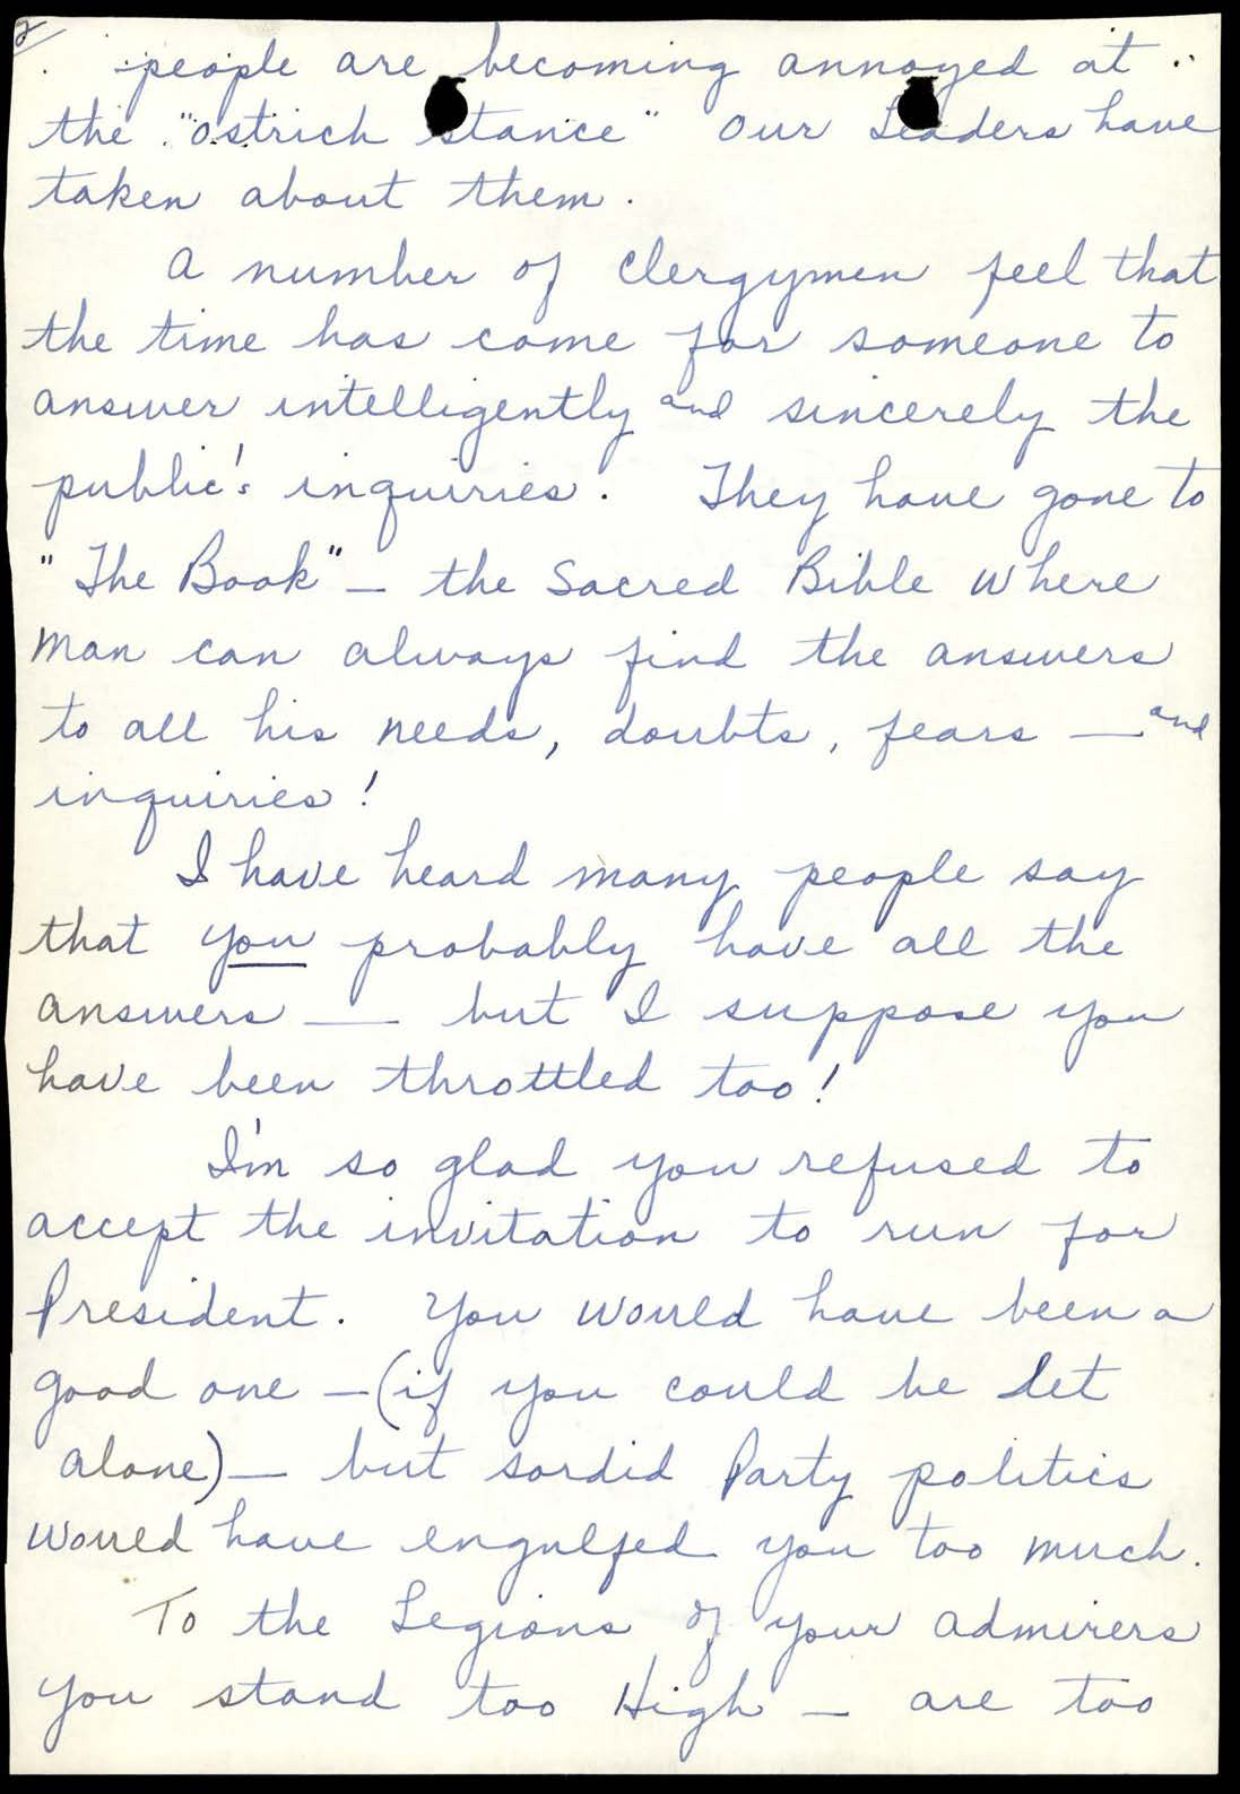 2
people are becoming annoyed at
the "ostrich stance" our Leaders have
taken about them.
A number of Clergymen feel that
the time has come for someone to
answer intelligently and sincerely the
public's inquiries. They have gone to
"The Book" — the Sacred Bible where
man can always find the answers
to all his needs, doubts, fears — and
inquiries!
I have heard many people say
that you probably have all the
answers — but I suppose you
have been throttled too!
I'm so glad you refused to
accept the invitation to run for
President. You would have been a
good one — (if you could be let
alone) — but sordid Party politics
would have engulfed you too much.
To the Legions of your admirers
you stand too High — are too